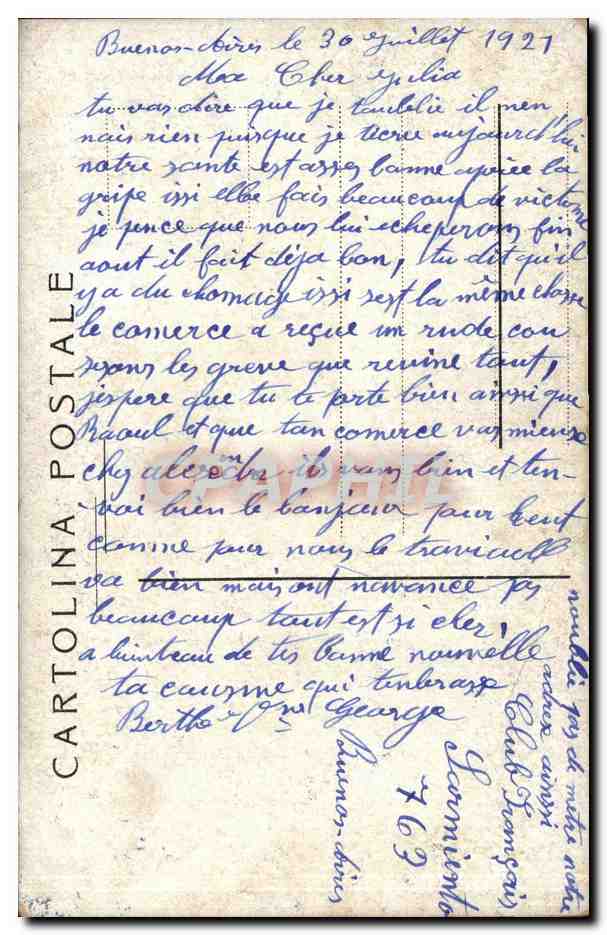 Buenos-Aires le 30 Juillet 1921
Ma Cher Julia
tu vas dire que je t'oublie il nen,
nais rien puisque je técrie aujourd'hui
notre sante est asses bonne aprée la
gripe issi elle fais beaucoup de victime
je pence que nous lui echeperons fin
aout il fait déja bon, tu dit qu'il
y a du chomage issi sest la même chose
le comerce a reçue un rude cou
sesons les greve que reuine tout,
jespere que tu te porte bien ainsi que
Raoul et que ton comerce vas mieux
chez ils vons bien et ten-
voi bien le bonjour pour
comme pour nous le travialle
va bien mais ont navance pas
beaucoup tout est si cher,
a bienteau de tes bonne nouvelle
ta cousine qui tenbrasse
Berthe George
noublie pas de metre notre
adrex ainssi
Club Français
Sarmiento
763
Buenos-Aires
CARTOLINA POSTALE
CPAPHIL